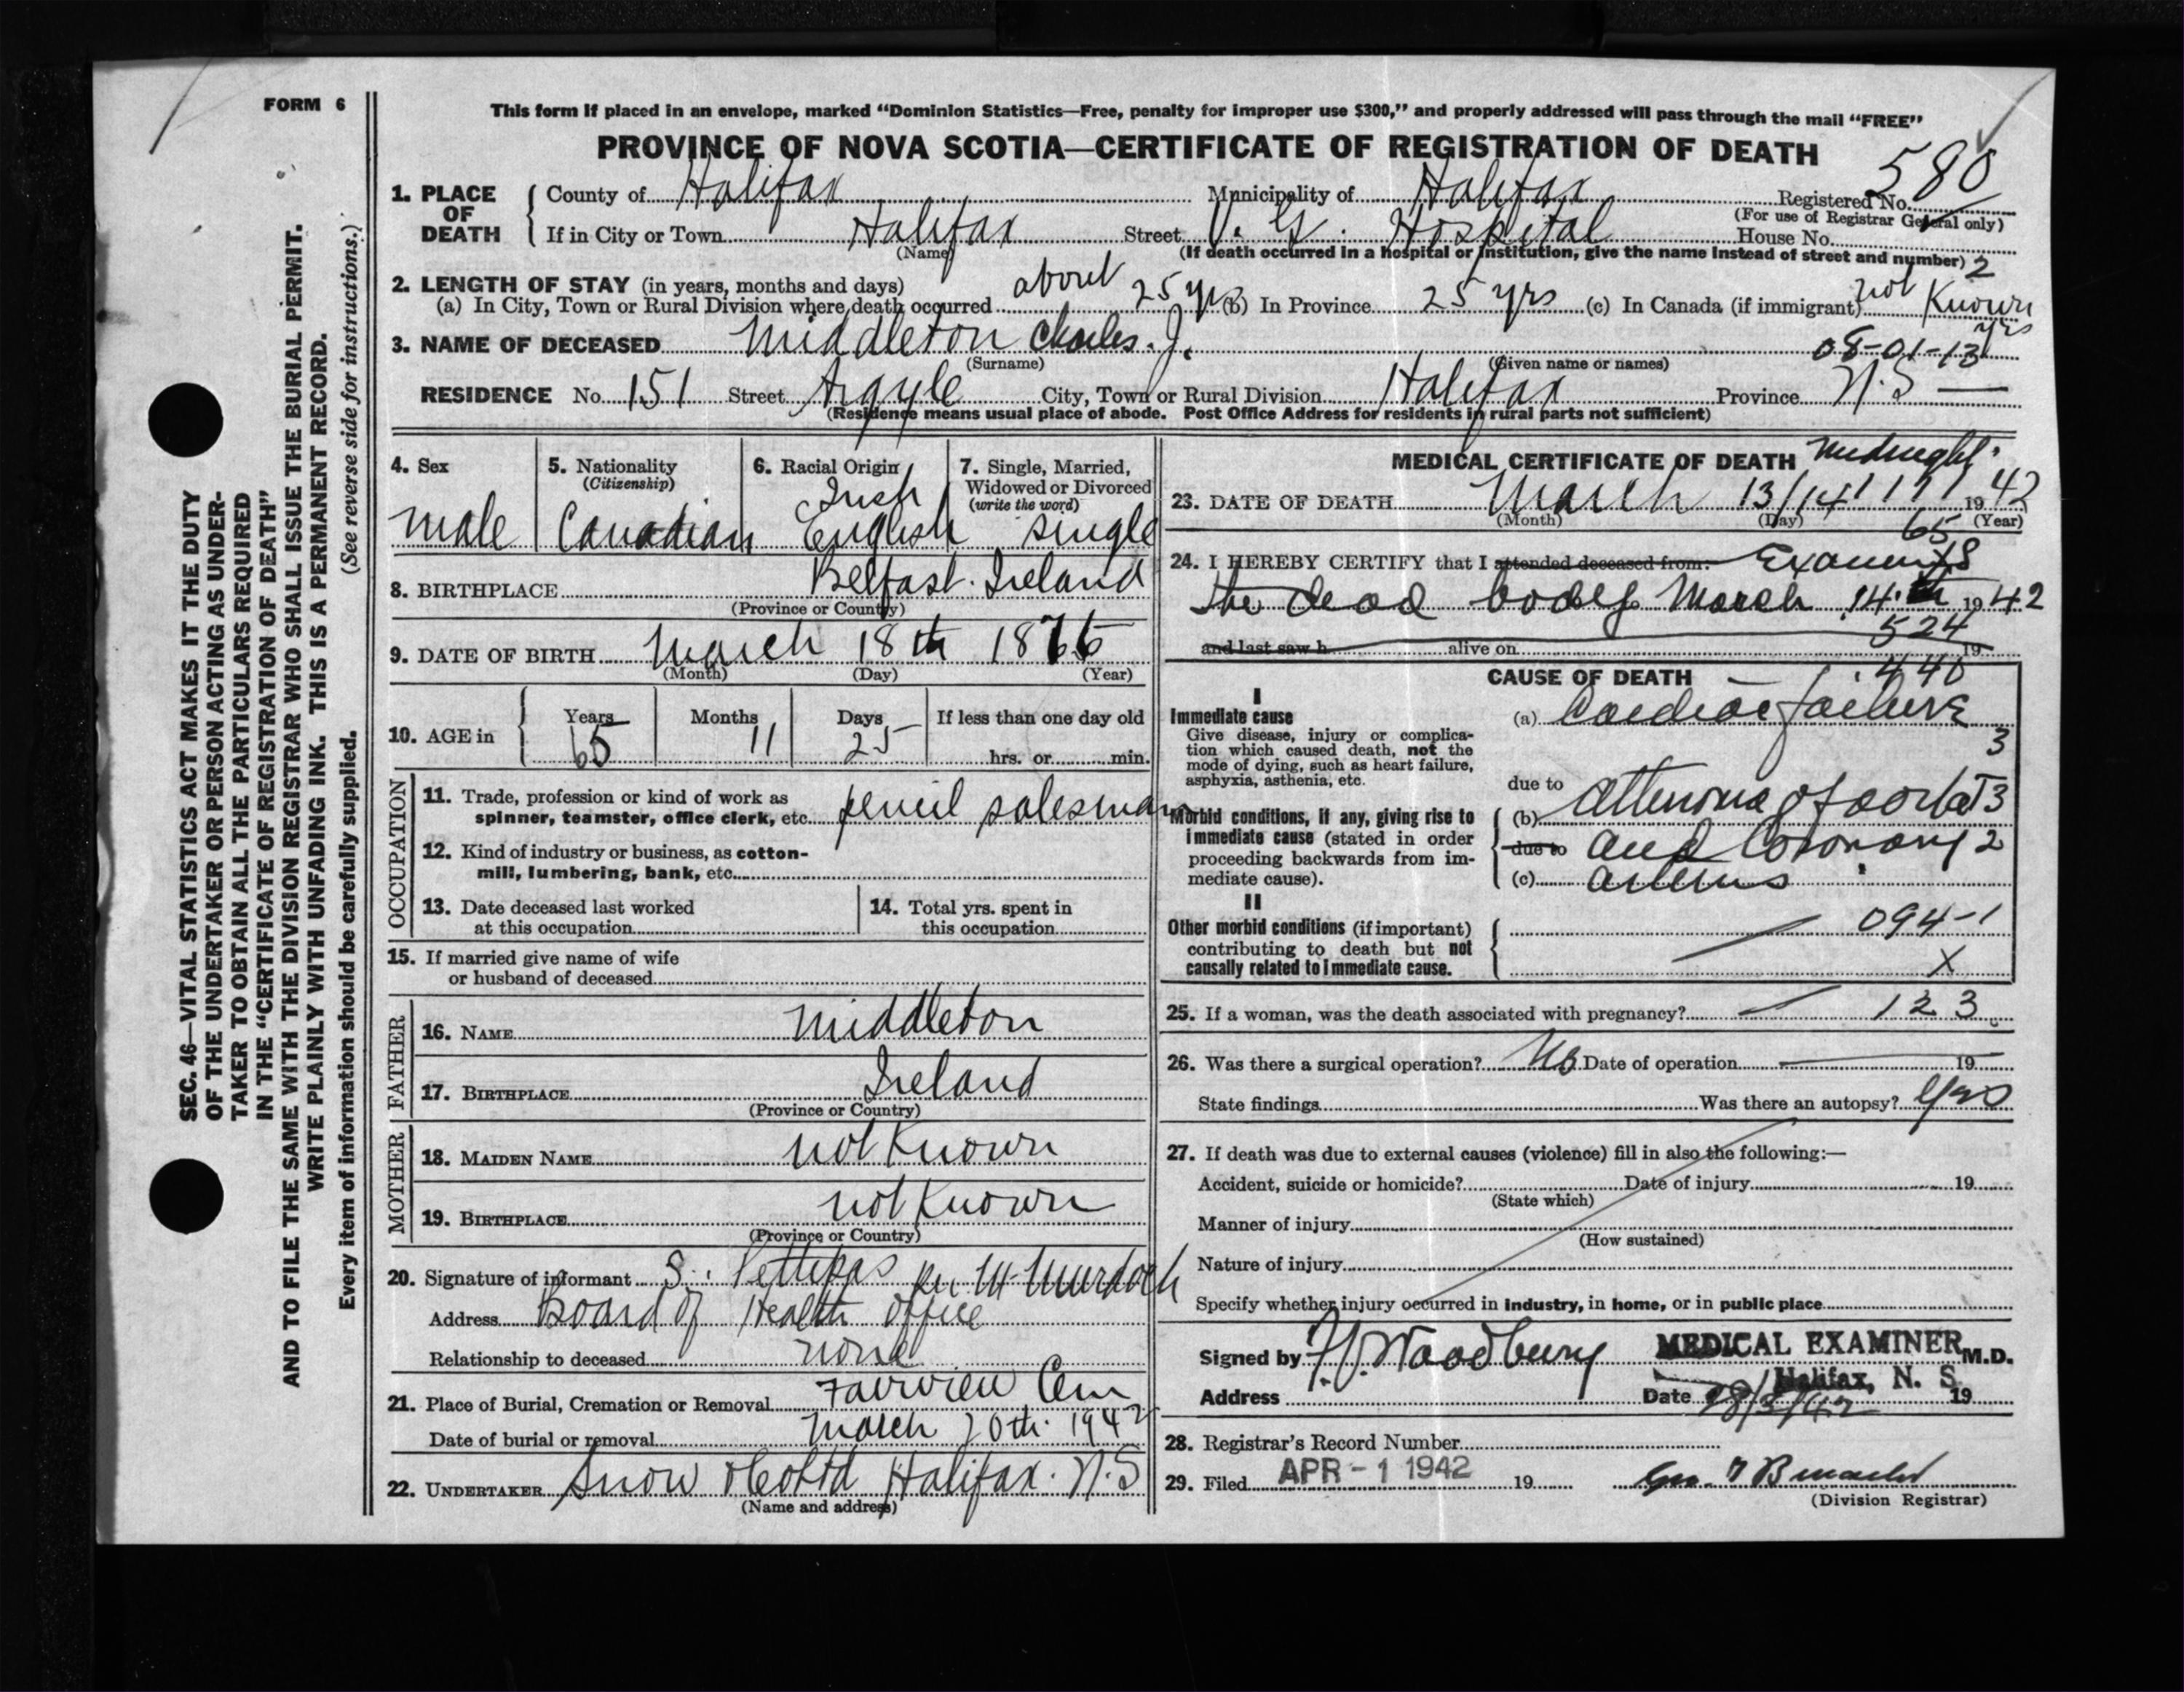 FORM 6
This form if placed in an envelope, marked “Dominion Statistics—Free, penalty for improper use $300,” and properly addressed will pass through the mail “FREE”
PROVINCE OF NOVA SCOTIA—CERTIFICATE OF REGISTRATION OF DEATH
580
1. PLACE OF DEATH
County of Halifax Municipality of Halifax Registered No.
(For use of Registrar General only)
If in City or Town Halifax Street V. G. Hospital House No.
(Name) (If death occurred in a hospital or institution, give the name instead of street and number) 2
2. LENGTH OF STAY (in years, months and days)
(a) In City, Town or Rural Division where death occurred about 25 yrs (b) In Province 25 yrs (c) In Canada (if immigrant) not Known yrs
3. NAME OF DECEASED Middleton Charles. J. 08-01-13
(Surname) (Given name or names)
RESIDENCE No. 151 Street Argyle City, Town or Rural Division Halifax Province N.S —
(Residence means usual place of abode. Post Office Address for residents in rural parts not sufficient)
4. Sex
male
5. Nationality
(Citizenship)
Canadian
6. Racial Origin
Irish
English
7. Single, Married,
Widowed or Divorced
(write the word)
single
8. BIRTHPLACE Belfast. Ireland
(Province or Country)
9. DATE OF BIRTH March 18th
(Month) (Day) (Year)
10. AGE in
Years Months Days If less than one day old
65 11 25 hrs. or min.
OCCUPATION
11. Trade, profession or kind of work as
spinner, teamster, office clerk, etc. pencil salesman
12. Kind of industry or business, as cotton-
mill, lumbering, bank, etc.
13. Date deceased last worked
at this occupation
14. Total yrs. spent in
this occupation
15. If married give name of wife
or husband of deceased
FATHER
16. NAME Middleton
17. BIRTHPLACE Ireland
(Province or Country)
MOTHER
18. MAIDEN NAME not Known
19. BIRTHPLACE not Known
(Province or Country)
20. Signature of informant S. Pettipas per M Murdoch
Address Board of Health office
Relationship to deceased none
21. Place of Burial, Cremation or Removal Fairview Cem
Date of burial or removal March 20th 1942
22. UNDERTAKER Snow & Co Ltd Halifax. N.S
(Name and address)
MEDICAL CERTIFICATE OF DEATH midnight
23. DATE OF DEATH March 13/14 1942
(Month) (Day) (Year)
65
24. I HEREBY CERTIFY that I attended deceased from:
the dead body March 14th 1942
524
and last saw h alive on 19
440
CAUSE OF DEATH
I
Immediate cause
Give disease, injury or complica-
tion which caused death, not the
mode of dying, such as heart failure,
asphyxia, asthenia, etc.
(a) Cardiac failure
3
due to
Morbid conditions, if any, giving rise to
immediate cause (stated in order
proceeding backwards from im-
mediate cause).
(b) of aorta 3
due to and Coronary 2
(c)
II
Other morbid conditions (if important)
contributing to death but not
causally related to immediate cause.
094-1
X
25. If a woman, was the death associated with pregnancy? — 123
26. Was there a surgical operation? No Date of operation 19
State findings Was there an autopsy? Yes
27. If death was due to external causes (violence) fill in also the following:—
Accident, suicide or homicide? Date of injury 19
(State which)
Manner of injury
(How sustained)
Nature of injury
Specify whether injury occurred in industry, in home, or in public place
Signed by Woodbury MEDICAL EXAMINER M.D.
Halifax, N. S.
Address Date 19
28. Registrar's Record Number
29. Filed APR - 1 1942 19
(Division Registrar)
SEC. 46—VITAL STATISTICS ACT MAKES IT THE DUTY
OF THE UNDERTAKER OR PERSON ACTING AS UNDER-
TAKER TO OBTAIN ALL THE PARTICULARS REQUIRED
IN THE “CERTIFICATE OF REGISTRATION OF DEATH”
AND TO FILE THE SAME WITH THE DIVISION REGISTRAR WHO SHALL ISSUE THE BURIAL PERMIT.
WRITE PLAINLY WITH UNFADING INK. THIS IS A PERMANENT RECORD.
Every item of information should be carefully supplied. (See reverse side for instructions.)